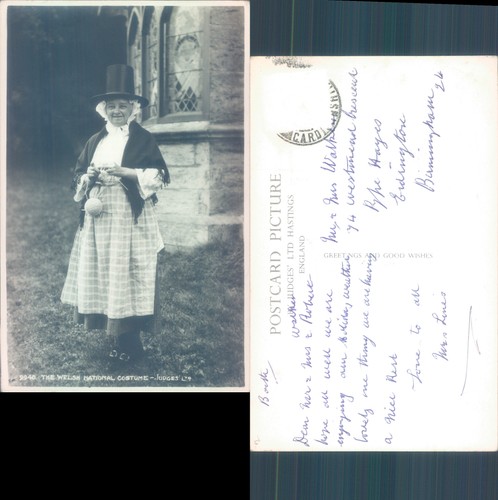 9848 THE WELSH NATIONAL COSTUME - JUDGES LTD
POSTCARD PICTURE
JUDGES' LTD HASTINGS
ENGLAND
GREETINGS AND GOOD WISHES
CARDI
Mr & Mrs
74 Westmead Crescent
Pype Hayes
Erdington
Birmingham 24
Dear Mr & Mrs & Robert
hope all well we are
enjoying our holiday weather
lovely one thing we are having
a nice Rest
Love to all
Mrs